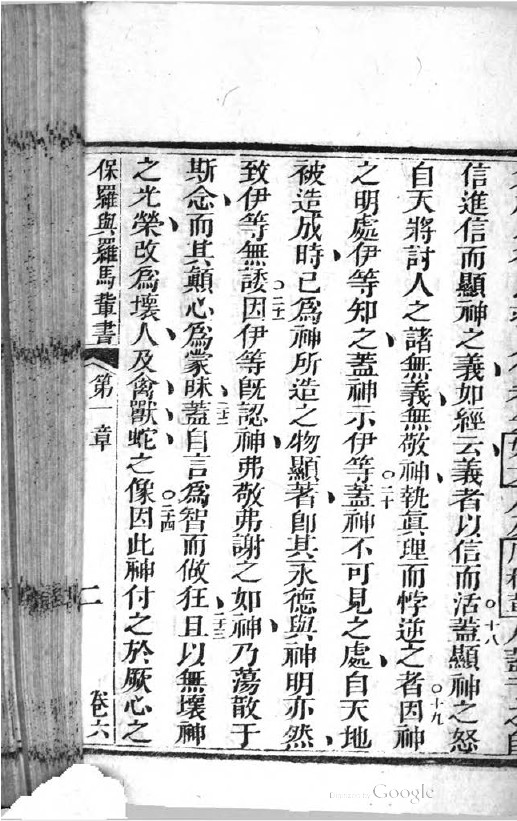 信進信而顯神之義如經云義者以信而活蓋顯神之怒
自天將討人之諸無義無敬神執眞理而悖逆之者因神
之明處伊等知之蓋神示伊等蓋神不可見之處自天地
被造成時已爲神所造之物顯著卽其永德與神明亦然
致伊等無諉因伊等旣認神弗敬弗謝之如神乃蕩散于
斯念而其顛心爲蒙昧蓋自言爲智而做狂且以無壞神
之光榮改爲壞人及禽獸蛇之像因此神付之於厥心之
保羅與羅馬輩書 第一章 二 卷六
○十八
○十九
○二十
○二十一
二十二
二十三
○二十四
Digitized by Google